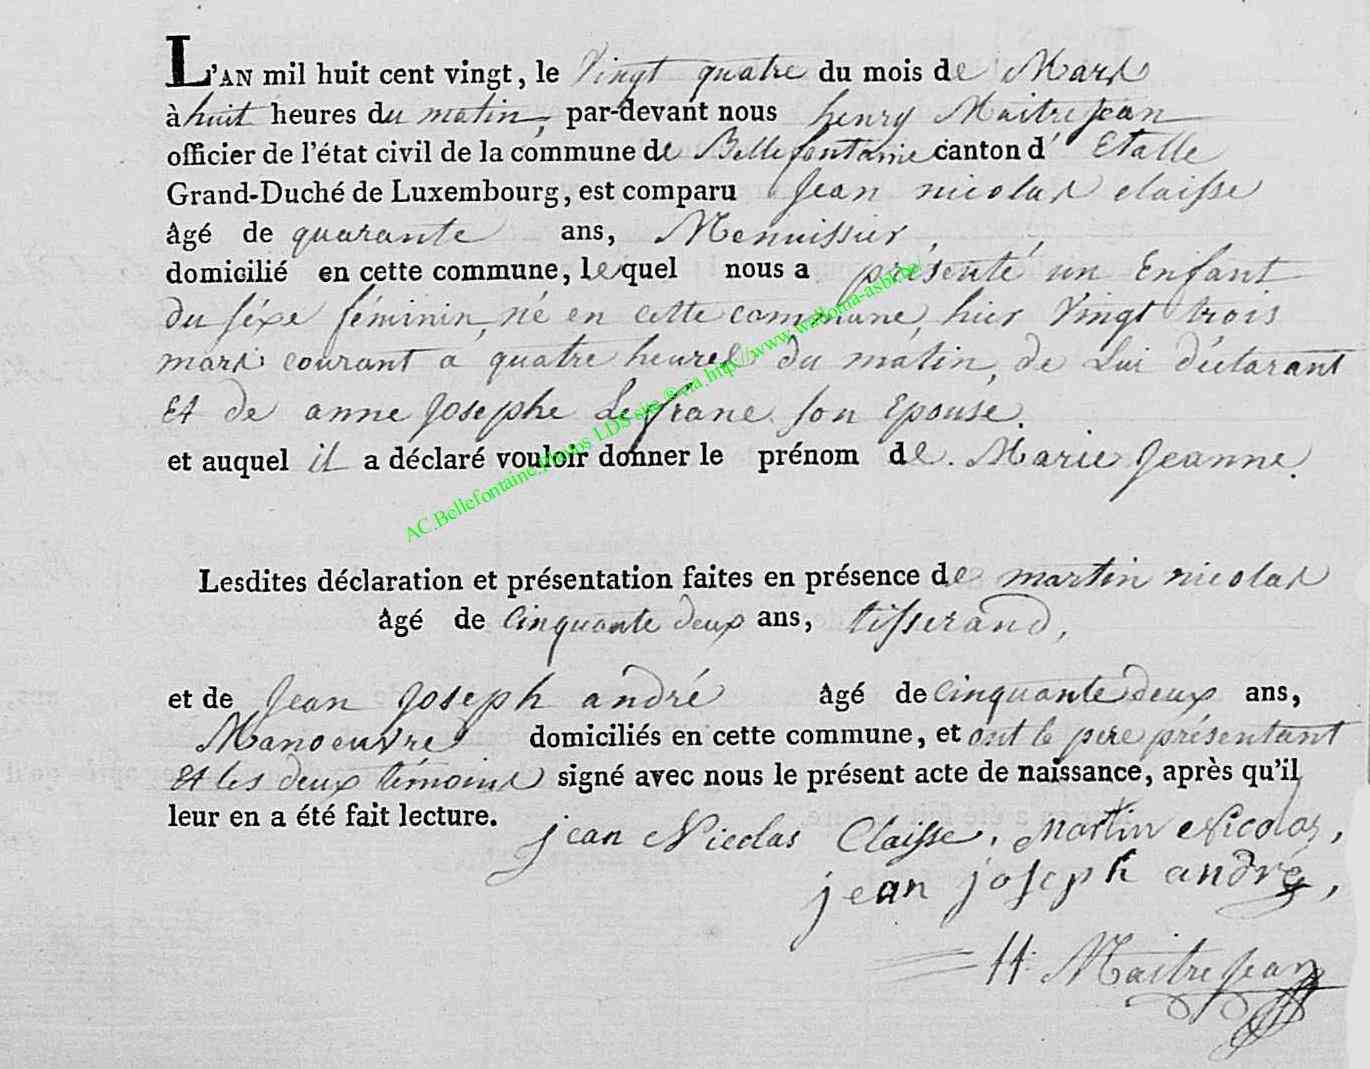 L'AN mil huit cent vingt, le Vingt quatre du mois de Mars
à huit heures du matin, par-devant nous henry Maitrejean
officier de l'état civil de la commune de Bellefontaine canton d' Etalle
Grand-Duché de Luxembourg, est comparu Jean nicolas claisse
âgé de quarante ans, Menuissier,
domicilié en cette commune, lequel nous a présenté un Enfant
du séxe féminin, né en cette commune, hier Vingt trois
mars courant a quatre heures du matin, de Lui déclarant
Et de anne Josephe Lefranc son Epouse.
et auquel il a déclaré vouloir donner le prénom de. Marie Jeanne.
AC.Bellefontaine,photos LDS site via http://www.wallonia-asbl.be/
Lesdites déclaration et présentation faites en présence de martin nicolas
âgé de Cinquante deux ans, tisserand,
et de Jean Joseph andré âgé de Cinquante deux ans,
Manoeuvre domiciliés en cette commune, et ont le pere présentant
Et les deux témoins signé avec nous le présent acte de naissance, après qu'il
leur en a été fait lecture.
jean Nicolas Claisse, Martin Nicolas,
jean joseph andré,
H: Maitrejean